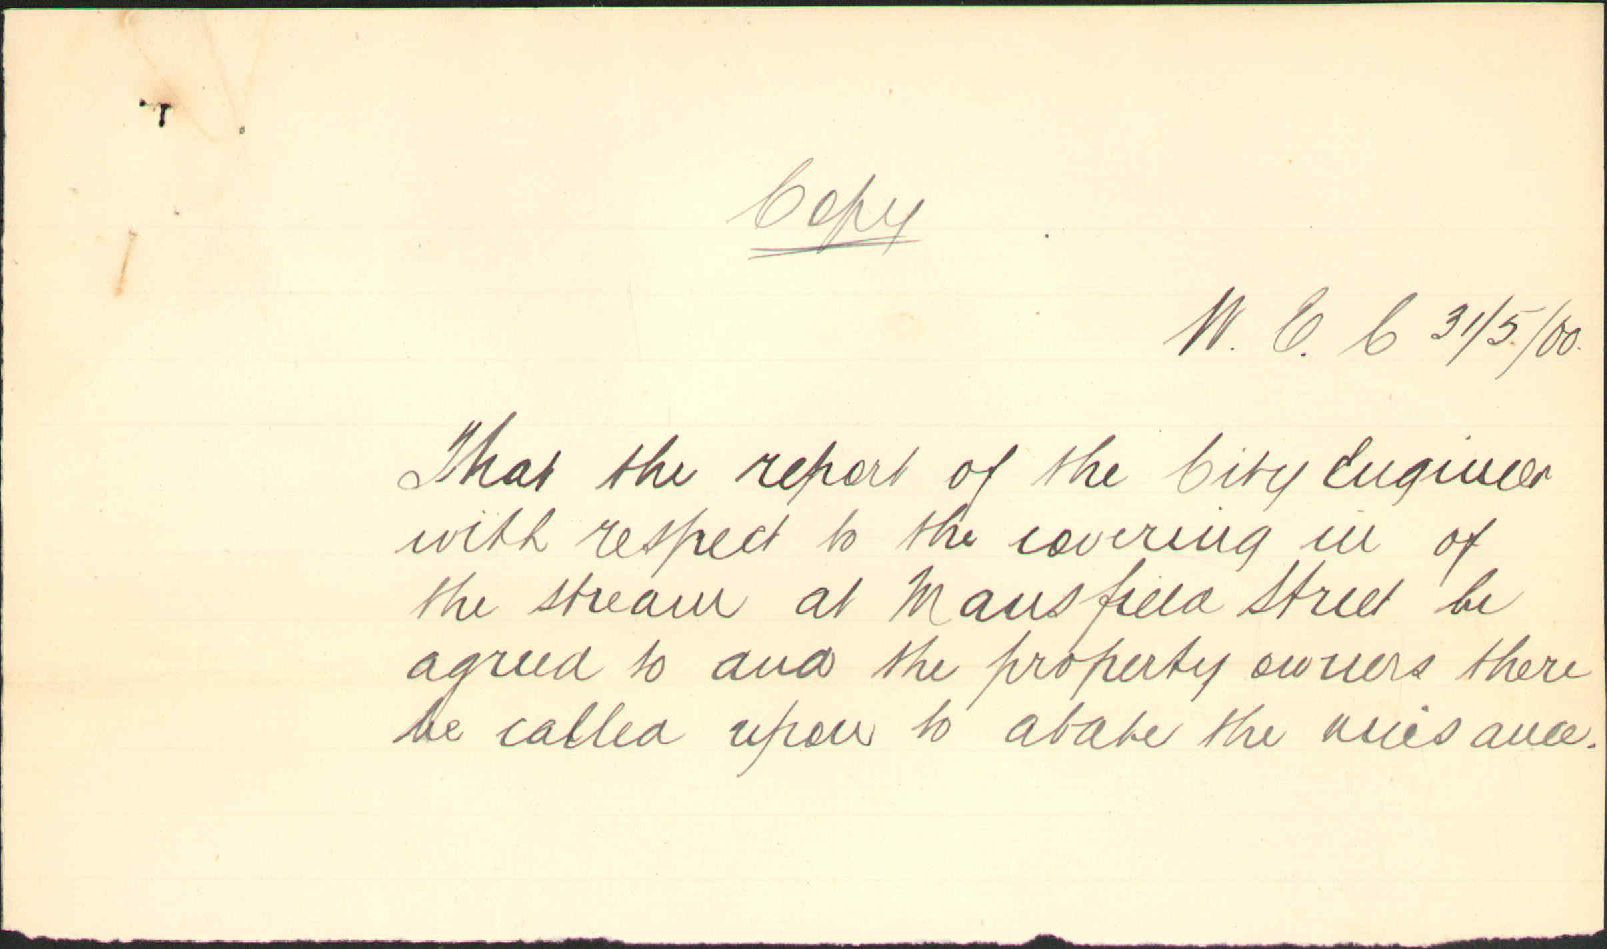 Copy
W. C. C 31/5/00.
That the report of the City Engineer
with respect to the covering in of
the stream at Mansfield Street be
agreed to and the property owners there
be called upon to abate the nuisance.